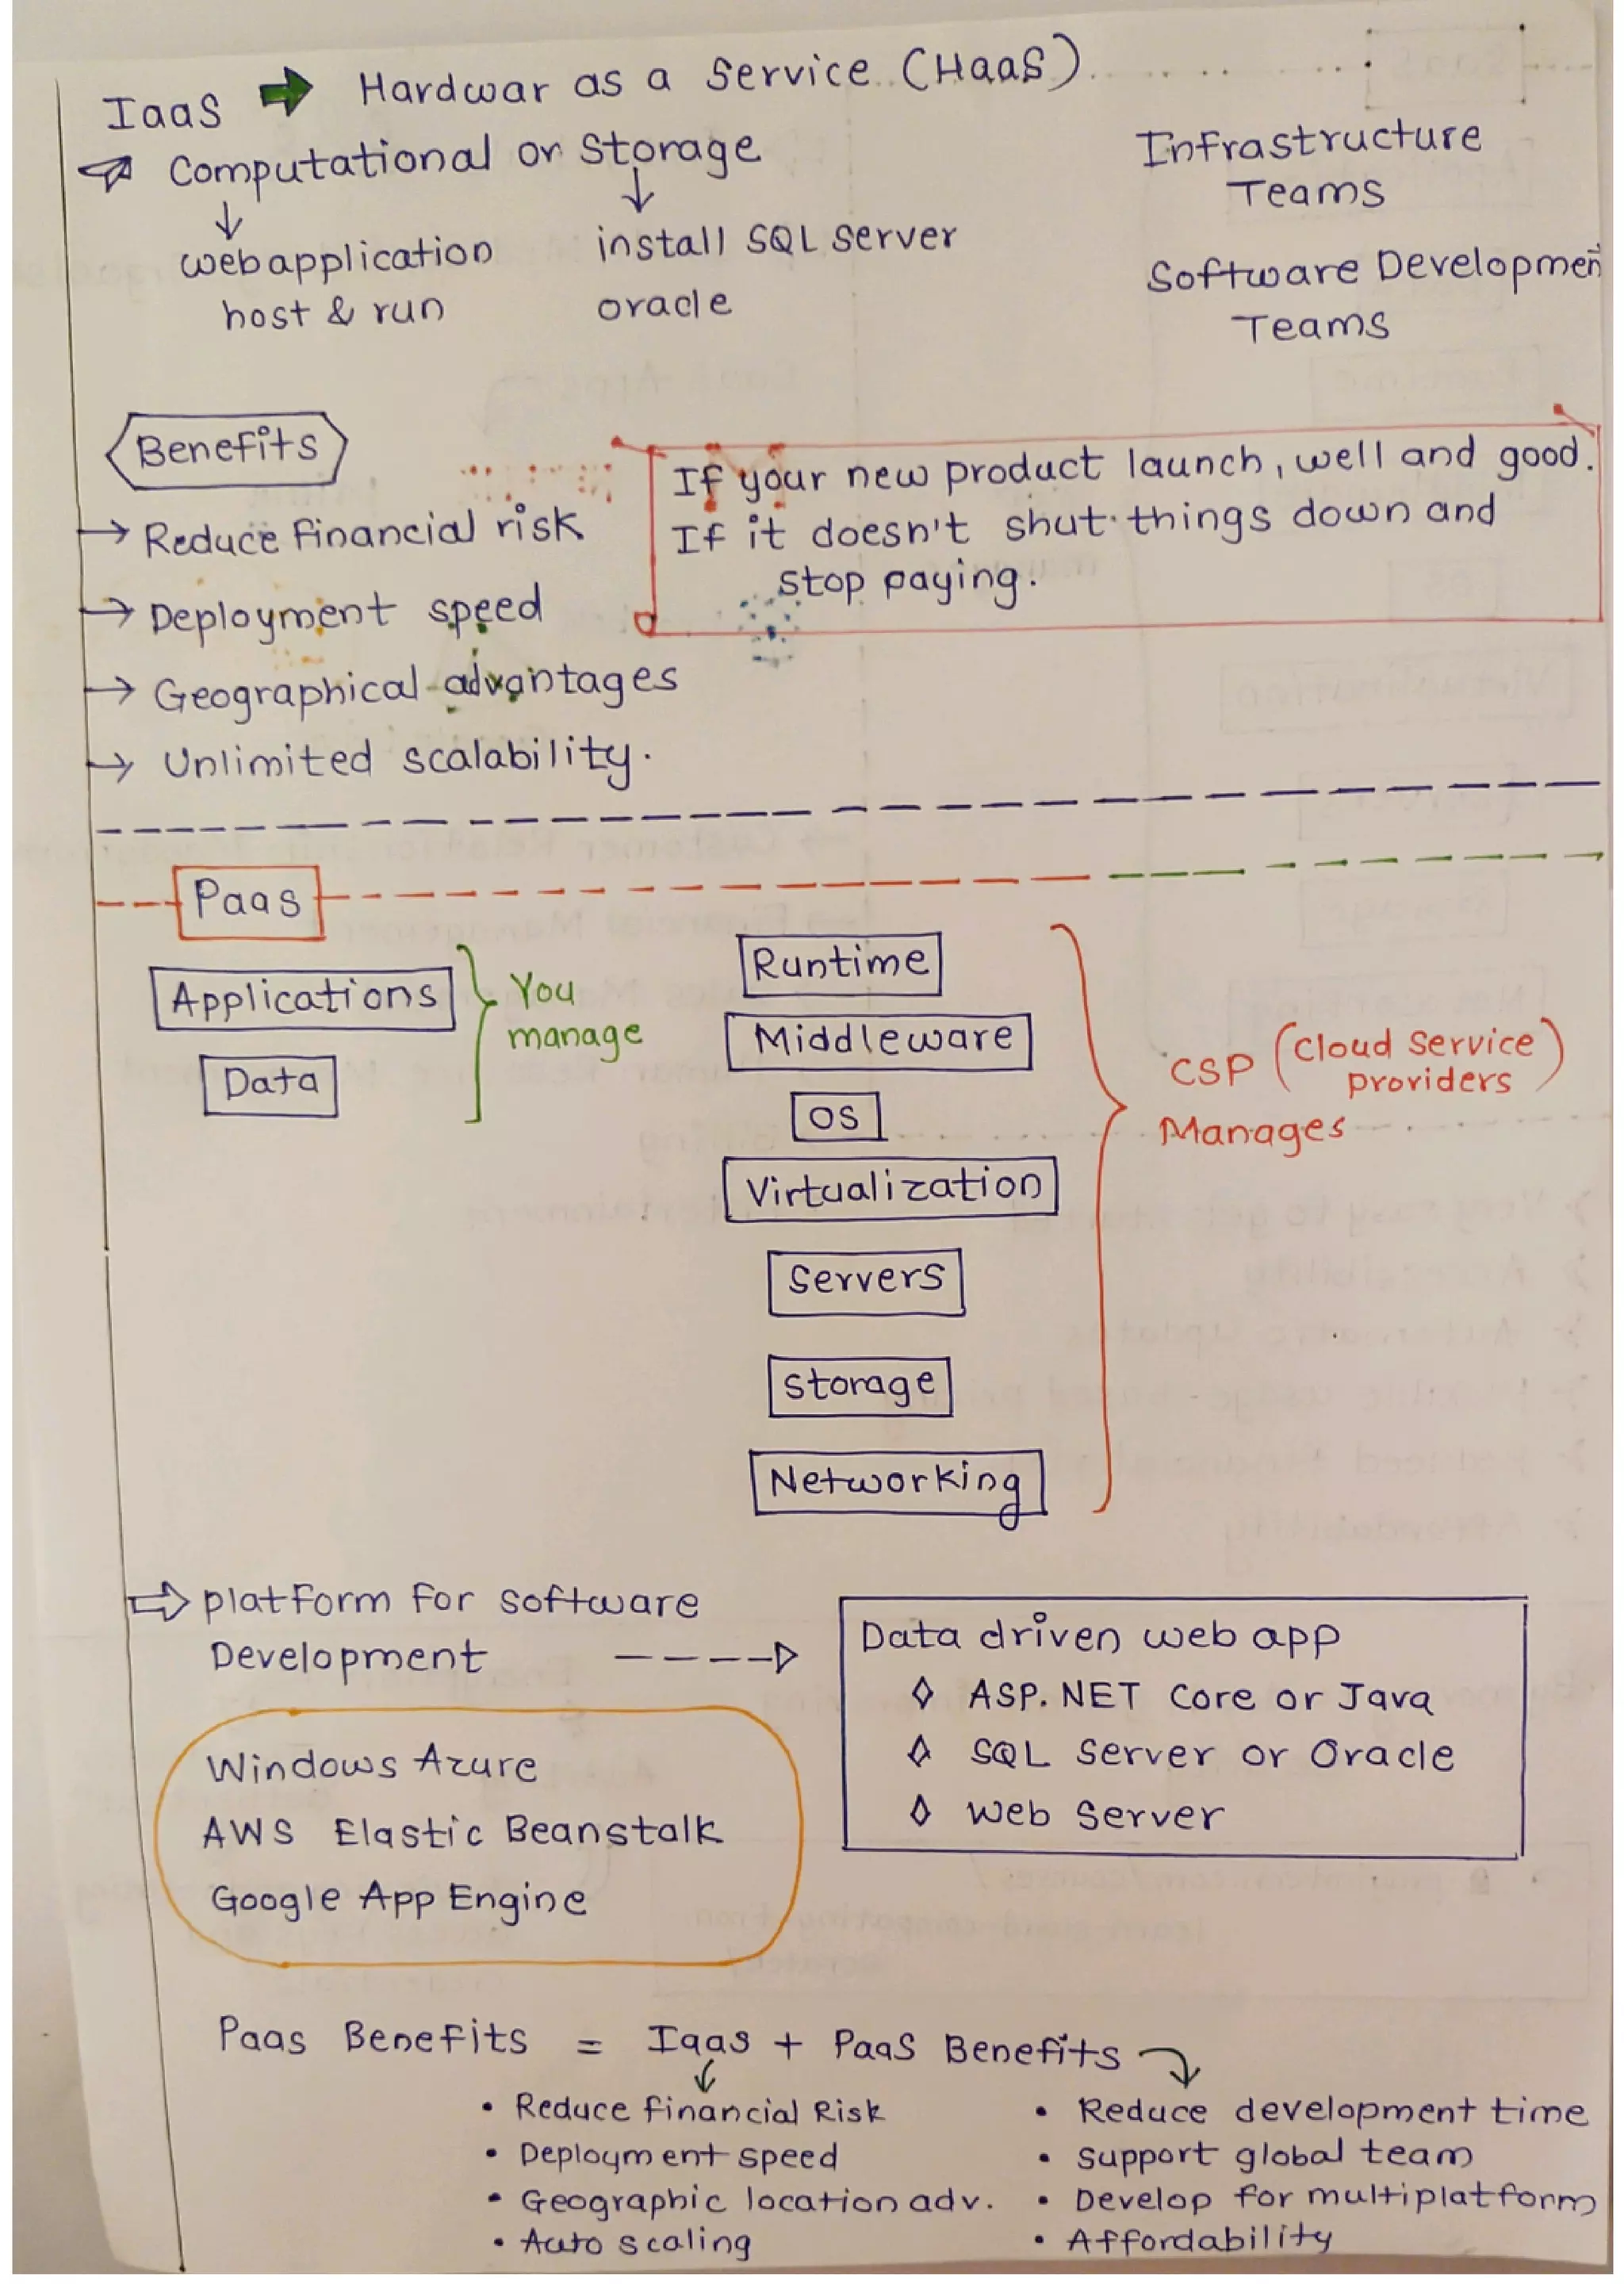 IaaS → Hardwar as a Service (HaaS)
Computational or Storage
↓ ↓
webapplication
host & run
install SQL Server
oracle
Infrastructure
Teams
Software Developmen
Teams
Benefits
→ Reduce financial risk
→ Deployment speed
→ Geographical advantages
→ Unlimited scalability.
If your new product launch, well and good.
If it doesn't shut things down and
stop paying.
Paas
Applications
Data
You
manage
Runtime
Middleware
OS
Virtualization
Servers
Storage
Networking
CSP (Cloud Service
providers)
Manages
⇒ Platform for software
Development
Data driven web app
◊ ASP.NET Core or Java
◊ SQL Server or Oracle
◊ Web Server
Windows Azure
AWS Elastic Beanstalk
Google App Engine
Paas Benefits = Iaas + PaaS Benefits
• Reduce financial Risk
• Deployment speed
• Geographic location adv.
• Auto scaling
• Reduce development time
• Support global team
• Develop for multiplatform
• Affordability